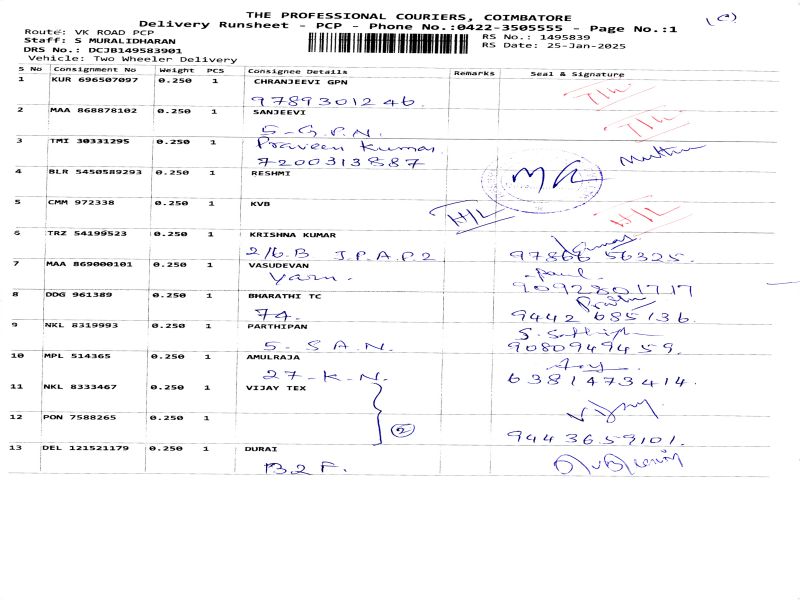 THE PROFESSIONAL COURIERS, COIMBATORE
Delivery Runsheet - PCP - Phone No.:0422-3505555 - Page No.:1
Route: VK ROAD PCP
Staff: S MURALIDHARAN
DRS No.: DCJB149583901
Vehicle: Two Wheeler Delivery
RS No.: 1495839
RS Date: 25-Jan-2025
S No Consignment No Weight PCS Consignee Details Remarks Seal & Signature
1 KUR 696507097 0.250 1 CHRANJEEVI GPN
9789301246.
2 MAA 868878102 0.250 1 SANJEEVI
5-G.P.N.
3 TMI 30331295 0.250 1 Praveen Kumar
7200313887
4 BLR 5450589293 0.250 1 RESHMI
5 CMM 972338 0.250 1 KVB
H/L
H/L
6 TRZ 54199523 0.250 1 KRISHNA KUMAR
2/6.B J.P.A.P2 97866 56325.
7 MAA 869000101 0.250 1 VASUDEVAN
Yarn. 9092801717
8 DDG 961389 0.250 1 BHARATHI TC
74. 9442 685136.
9 NKL 8319993 0.250 1 PARTHIPAN
5-SAN. 9080949459.
10 MPL 514365 0.250 1 AMULRAJA
27-K.N. 6381473414.
11 NKL 8333467 0.250 1 VIJAY TEX
Vijay
12 PON 7588265 0.250 1
2
9443659101.
13 DEL 121521179 0.250 1 DURAI
B2F.